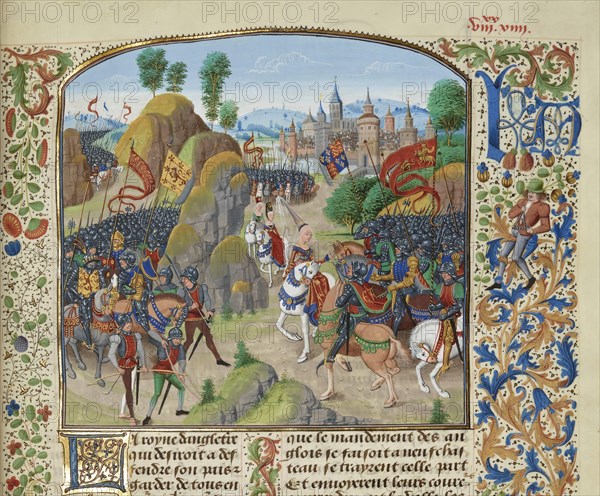 viii.xx viii.
La royne dangleter
qui desiroit a def
fendre son pais
garder de tous en
que le mandement des an
glois se faisoit a neuf chas
teau se trayrent celle part
Et envoyerent leurs coure
PHOTO12